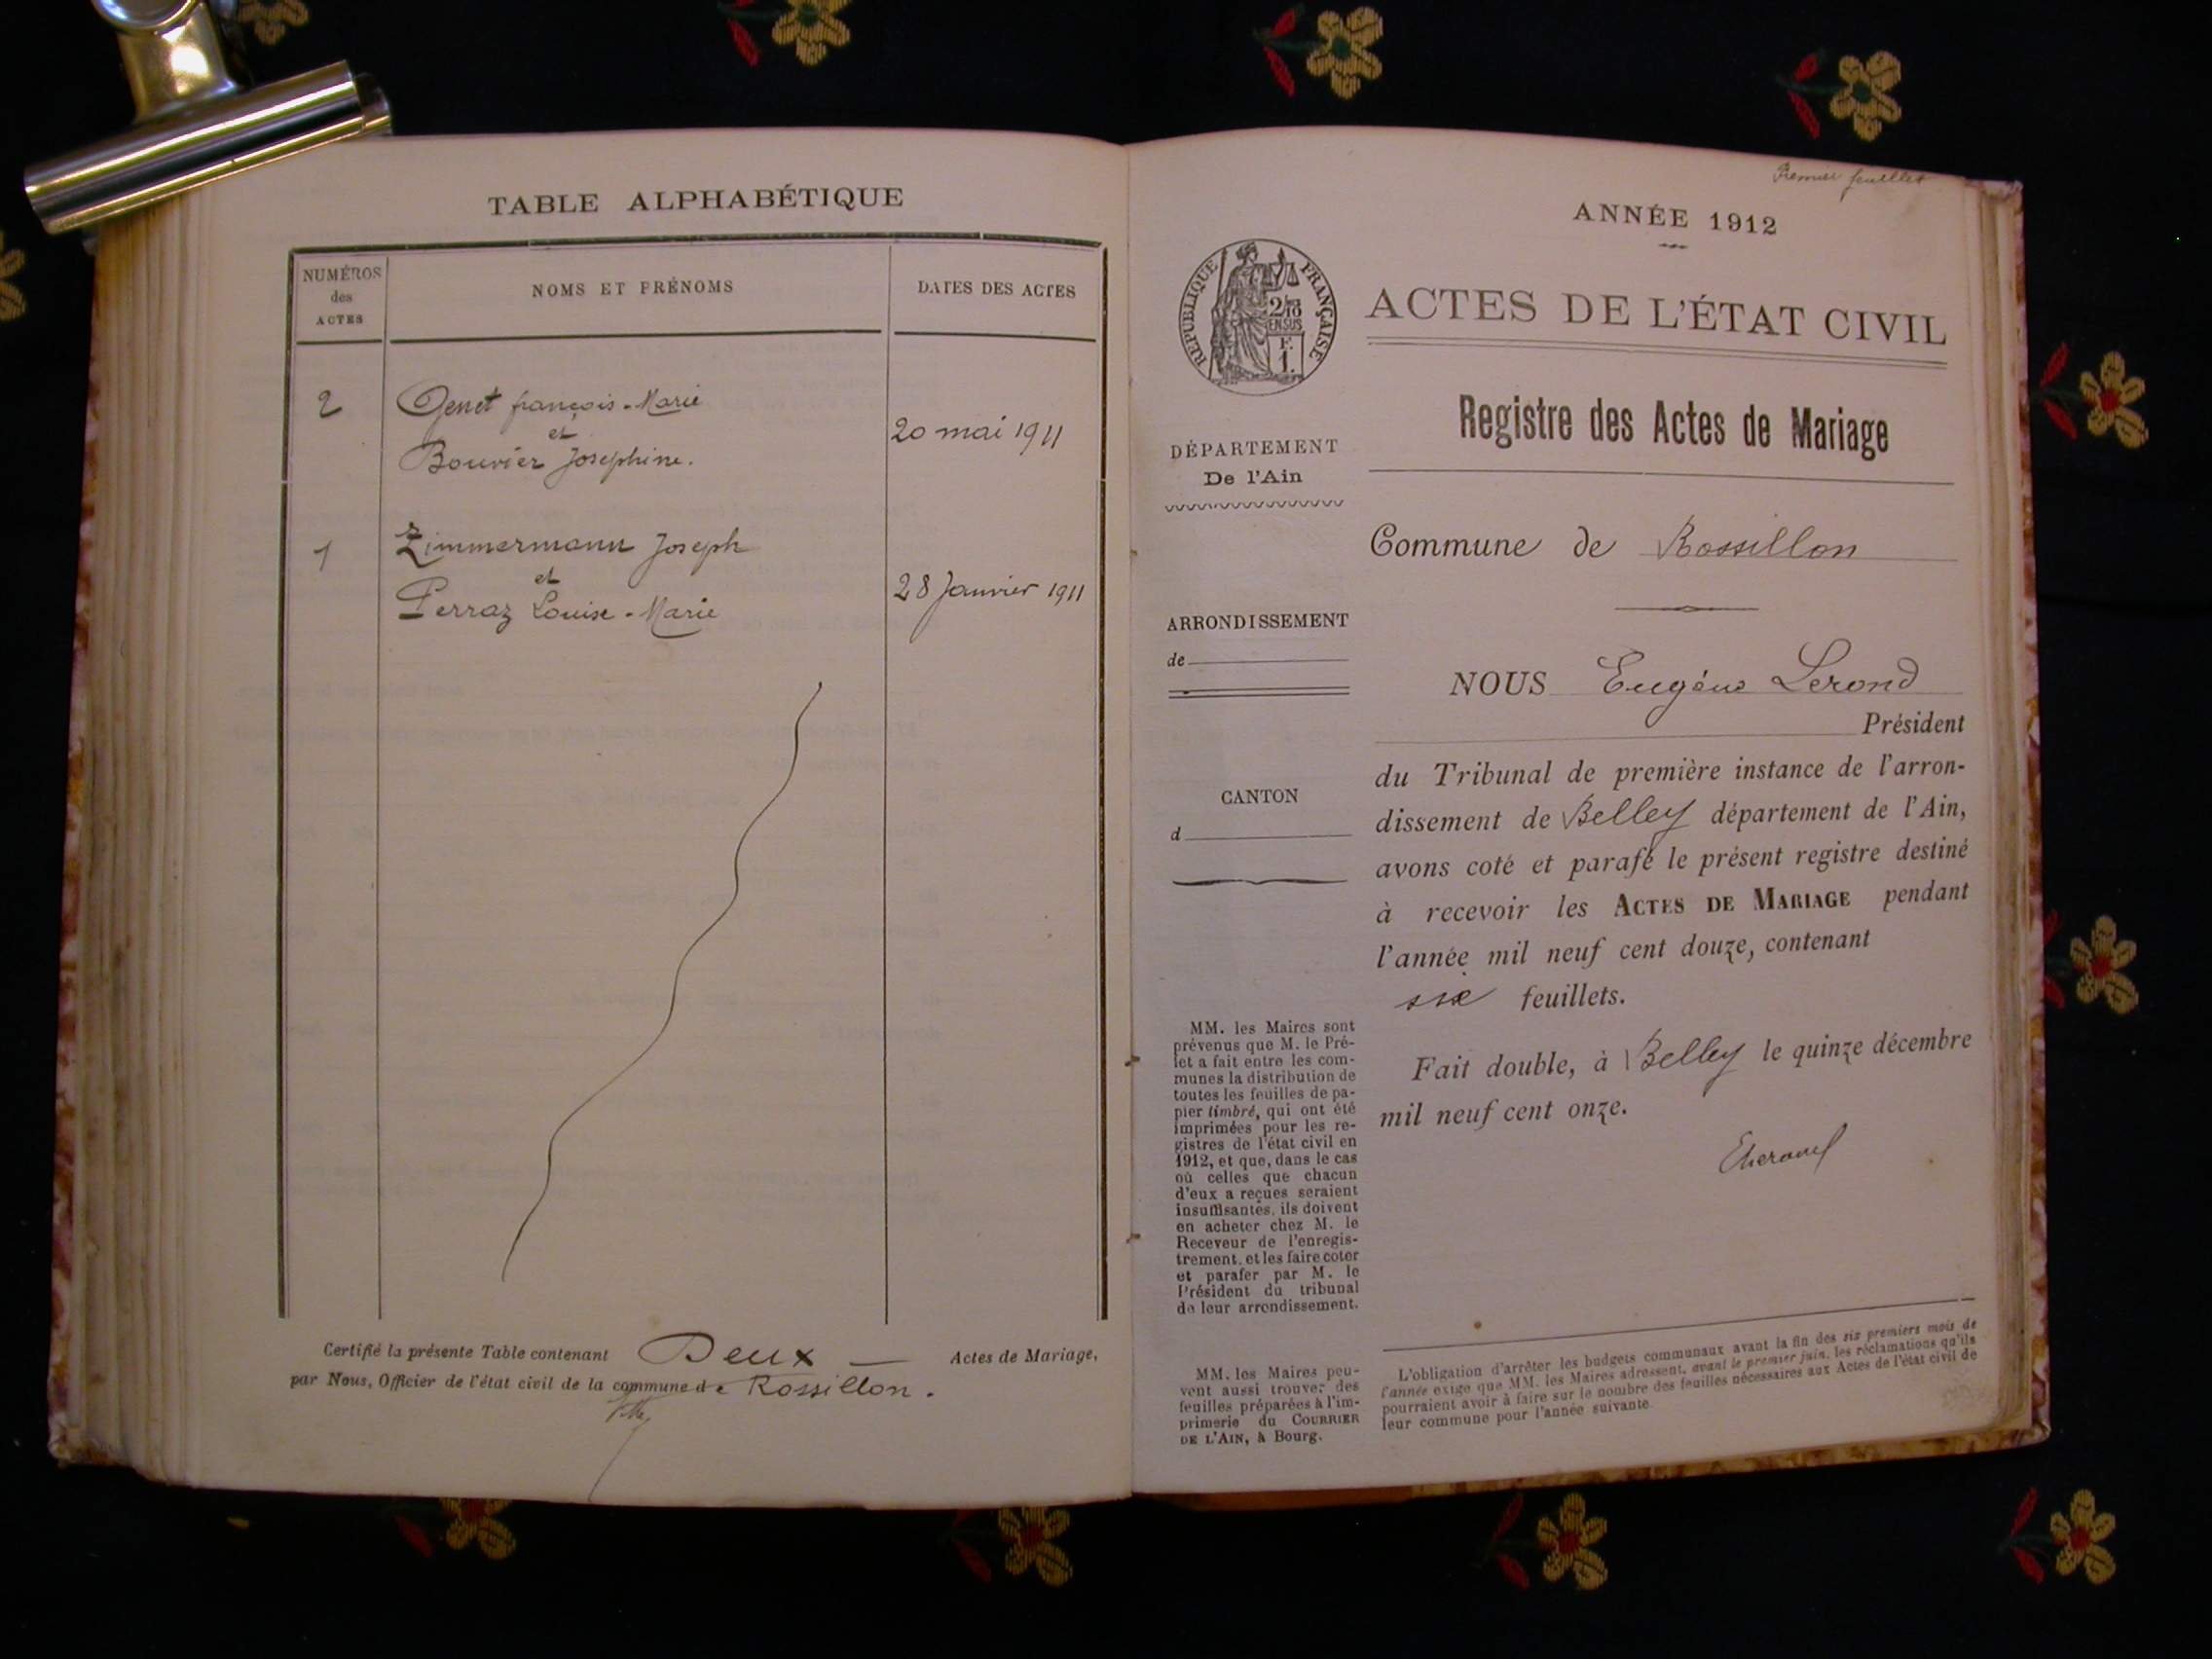 TABLE ALPHABÉTIQUE
NUMÉROS
des
ACTES
NOMS ET PRÉNOMS
DATES DES ACTES
2
Genet françois-Marie
et
Bouvier Josephine.
20 mai 1911
1
Zimmermann Joseph
et
Perraz Louise-Marie
28 Janvier 1911
Certifié la présente Table contenant Deux — Actes de Mariage,
par Nous, Officier de l'état civil de la commune de Rossillon.
Premier feuillet
ANNÉE 1912
RÉPUBLIQUE FRANÇAISE
2/10
EN SUS
F.
1.
ACTES DE L'ÉTAT CIVIL
Registre des Actes de Mariage
DÉPARTEMENT
De l'Ain
Commune de Rossillon
ARRONDISSEMENT
de
CANTON
d
NOUS Eugène Lerond
Président
du Tribunal de première instance de l'arron-
dissement de Belley département de l'Ain,
avons coté et parafé le présent registre destiné
à recevoir les ACTES DE MARIAGE pendant
l'année mil neuf cent douze, contenant
six feuillets.
Fait double, à Belley le quinze décembre
mil neuf cent onze.
MM. les Maires sont
prévenus que M. le Pré-
fet a fait entre les com-
munes la distribution de
toutes les feuilles de pa-
pier timbré, qui ont été
imprimées pour les re-
gistres de l'état civil en
1912, et que, dans le cas
où celles que chacun
d'eux a reçues seraient
insuffisantes, ils doivent
en acheter chez M. le
Receveur de l'enregis-
trement, et les faire coter
et parafer par M. le
Président du tribunal
de leur arrondissement.
MM. les Maires peu-
vent aussi trouver des
feuilles préparées à l'im-
primerie du COURRIER
DE L'AIN, à Bourg.
L'obligation d'arrêter les budgets communaux avant la fin des six premiers mois de
l'année exige que MM. les Maires adressent, avant le premier juin, les réclamations qu'ils
pourraient avoir à faire sur le nombre des feuilles nécessaires aux Actes de l'état civil de
leur commune pour l'année suivante.